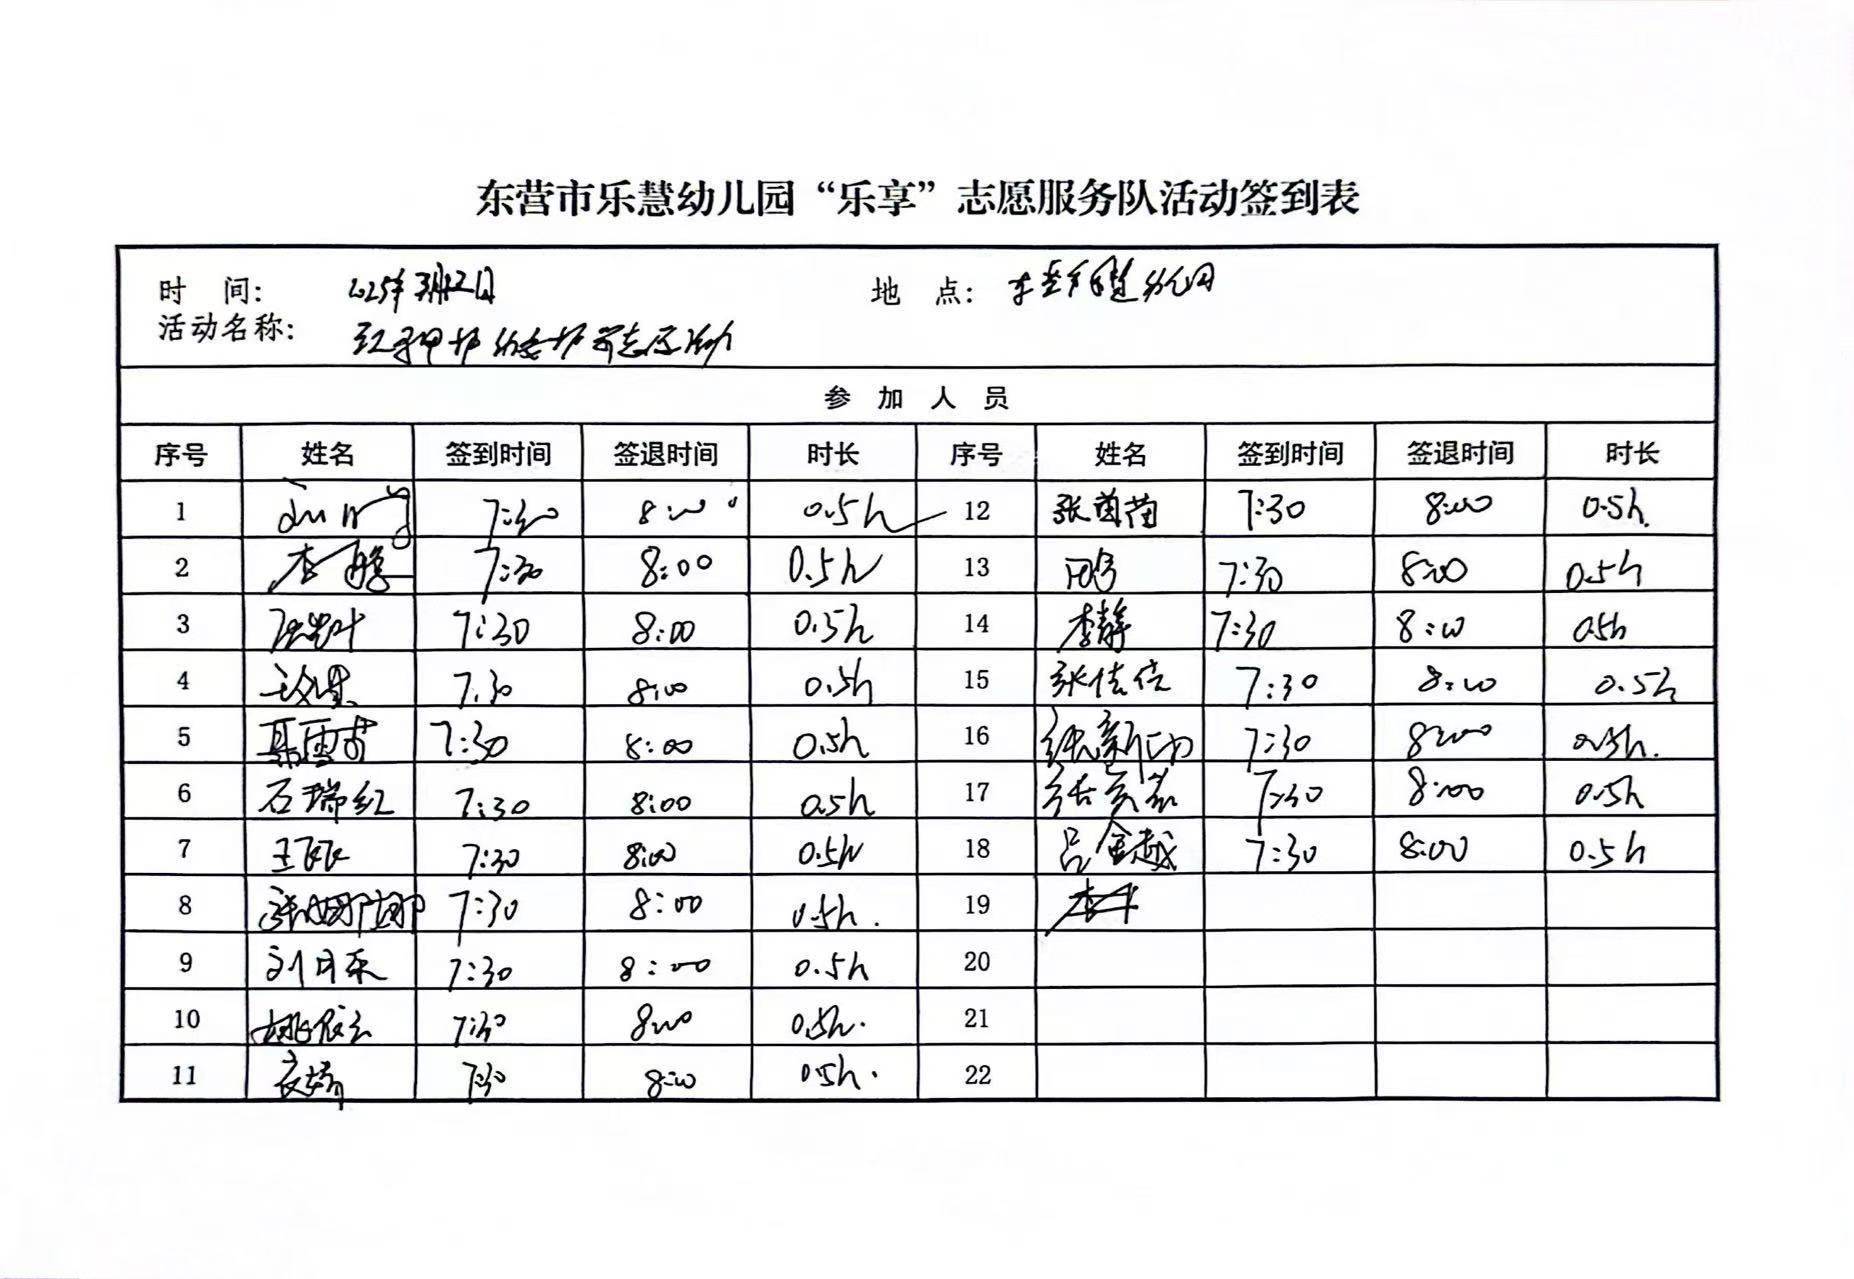 东营市乐慧幼儿园“乐享”志愿服务队活动签到表
时 间： 2025年3月12日 地 点： 东营市乐慧幼儿园
活动名称： 红马甲护幼志愿活动
参 加 人 员
序号 姓名 签到时间 签退时间 时长 序号 姓名 签到时间 签退时间 时长
1 7:30 8:00 0.5h 12 张茵茵 7:30 8:00 0.5h.
2 李 7:30 8:00 0.5h 13 7:30 8:00 0.5h
3 7:30 8:00 0.5h 14 李静 7:30 8:00 0.5h
4 7:30 8:00 0.5h 15 张佳佳 7:30 8:00 0.5h
5 聂雪芹 7:30 8:00 0.5h 16 7:30 8:00 0.5h.
6 石瑞红 7:30 8:00 0.5h 17 7:30 8:00 0.5h
7 7:30 8:00 0.5h 18 吕金越 7:30 8:00 0.5h
8 张娜娜 7:30 8:00 0.5h. 19
9 刘月乐 7:30 8:00 0.5h 20
10 姚依云 7:30 8:00 0.5h. 21
11 7:30 8:00 0.5h. 22